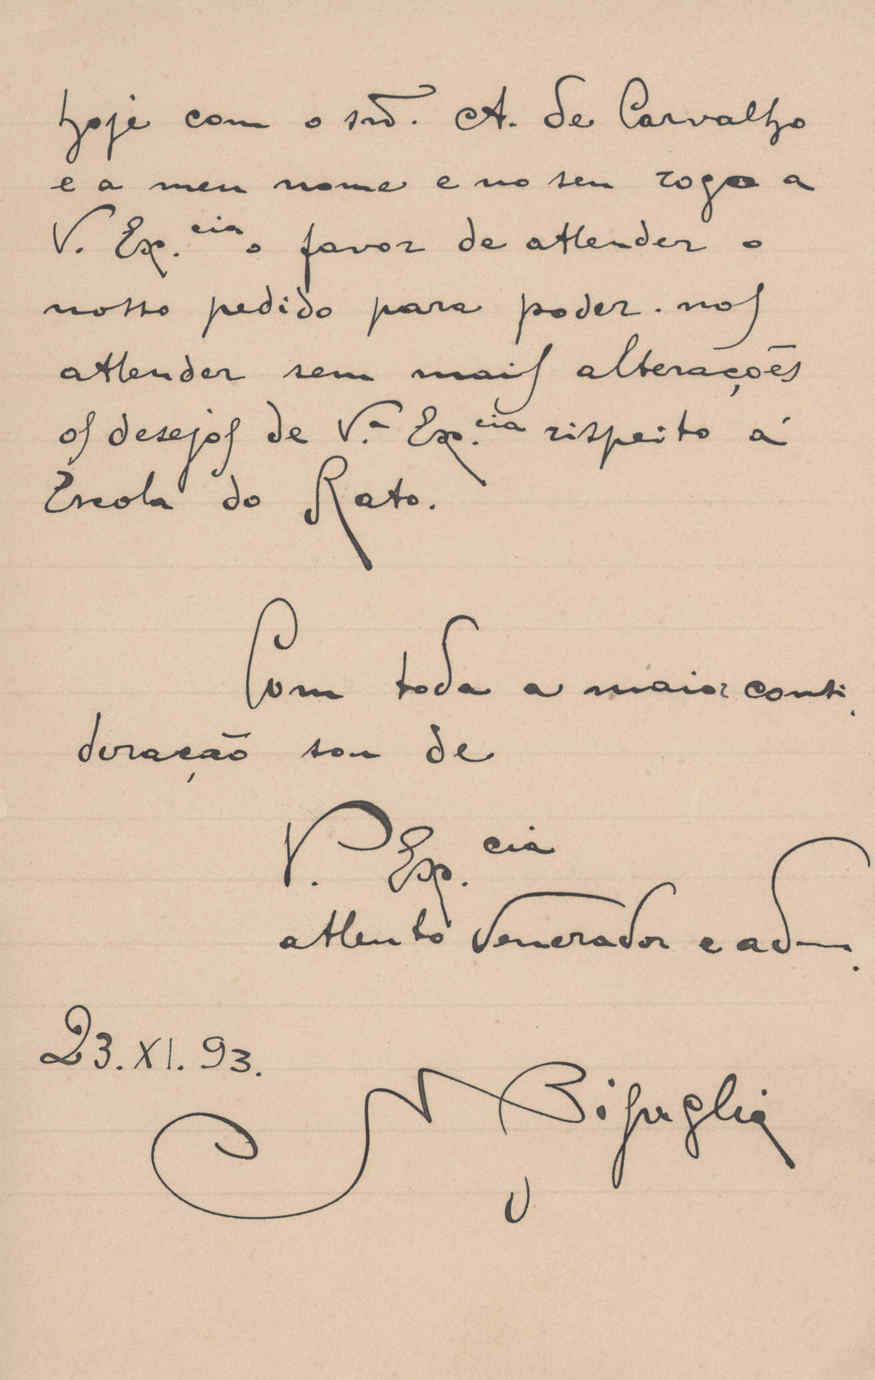 hoje com o snr. A. de Carvalho
e a meu nome e no seu rogo a
V. Ex.cia o favor de attender o
nosso pedido para poder-nos
attender sem mais alterações
os desejos de V.a Ex.cia rispeito á
Escola do Rato.
Com toda a maior consi-
deração sou de
V. Ex.cia
attento Venerador e ad
23.XI.93.